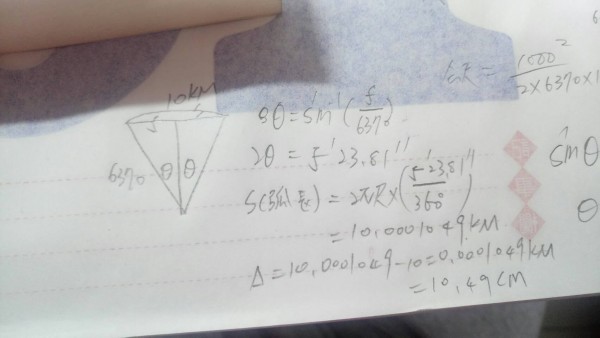 10KM
5
6370 θ θ
θ = sin⁻¹(5/6370)
2θ = 5'23.81"
S(弧長) = 2πR×(5'23.81"/360°)
= 10.0001049KM
Δ = 10.0001049-10 = 0.0001049KM
= 10.49CM
= 1000²/2×6370×1
sinθ
θ
6